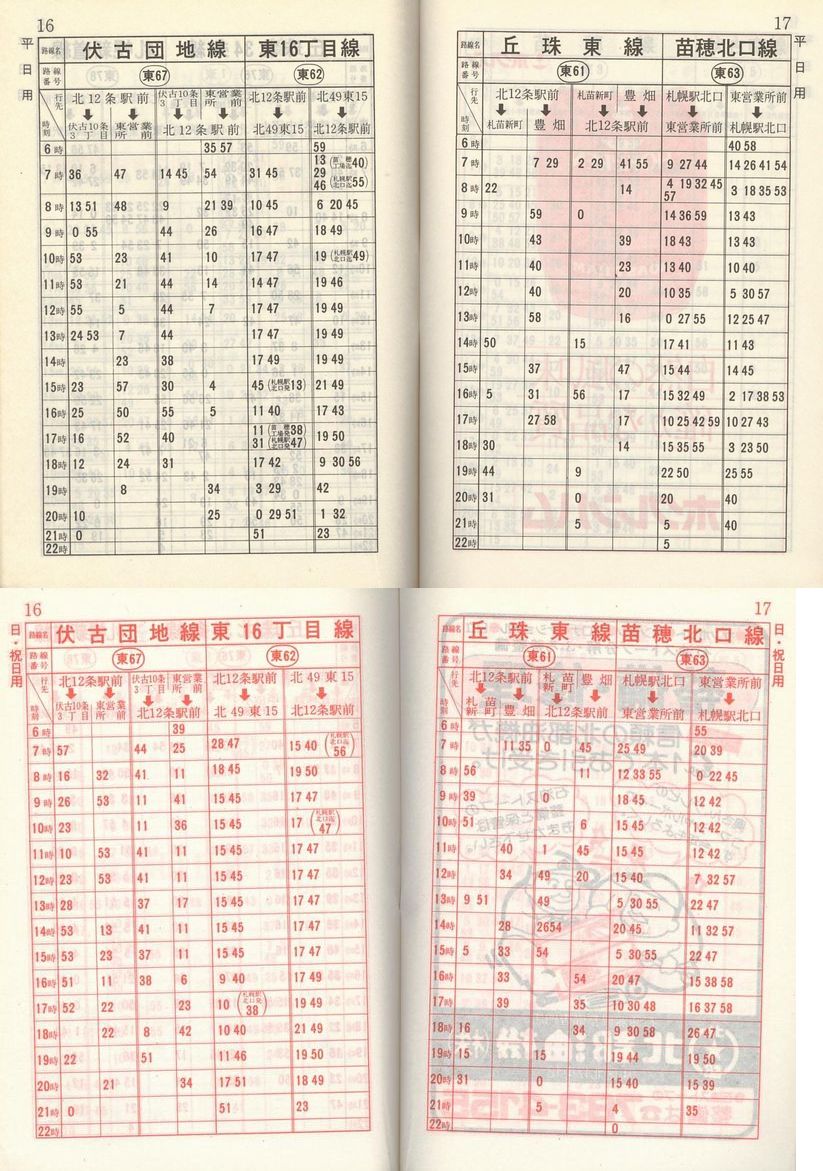 16
平日用
路線名 伏古団地線 東16丁目線
路線番号 東67 東62
行先 北12条駅前 伏古10条3丁目 東営業所前 北12条駅前 北49東15
時刻 伏古10条3丁目 東営業所前 北12条駅前 北49東15 北12条駅前
6時 35 57 59
7時 36 47 14 45 54 31 45 13(苗穂工場迄40) 29 46(札幌駅北口迄55)
8時 13 51 48 9 21 39 10 45 6 20 45
9時 0 55 44 26 16 47 18 49
10時 53 23 41 10 17 47 19(札幌駅北口迄49)
11時 53 21 44 14 14 47 19 46
12時 55 5 44 7 17 47 19 49
13時 24 53 7 44 17 47 19 49
14時 23 38 17 49 19 49
15時 23 57 30 4 45(札幌駅北口発13) 21 49
16時 25 50 55 5 11 40 17 43
17時 16 52 40 11(苗穂工場発38) 31(札幌駅北口発47) 19 50
18時 12 24 31 17 42 9 30 56
19時 8 34 3 29 42
20時 10 25 0 29 51 1 32
21時 0 51 23
22時
17
平日用
路線名 丘珠東線 苗穂北口線
路線番号 東61 東63
行先 北12条駅前 札苗新町 豊畑 札幌駅北口 東営業所前
時刻 札苗新町 豊畑 北12条駅前 東営業所前 札幌駅北口
6時 40 58
7時 7 29 2 29 41 55 9 27 44 14 26 41 54
8時 22 14 4 19 32 45 57 3 18 35 53
9時 59 0 14 36 59 13 43
10時 43 39 18 43 13 43
11時 40 23 13 40 10 40
12時 40 20 10 35 5 30 57
13時 58 16 0 27 55 12 25 47
14時 50 15 17 41 11 43
15時 37 47 15 44 14 45
16時 5 31 56 17 15 32 49 2 17 38 53
17時 27 58 17 10 25 42 59 10 27 43
18時 30 14 15 35 55 3 23 50
19時 44 9 22 50 25 55
20時 31 0 20 40
21時 5 5 40
22時 5
16
日・祝日用
路線名 伏古団地線 東16丁目線
路線番号 東67 東62
行先 北12条駅前 伏古10条3丁目 東営業所前 北12条駅前 北49東15
時刻 伏古10条3丁目 東営業所前 北12条駅前 北49東15 北12条駅前
6時 39
7時 57 44 25 28 47 15 40(札幌駅北口迄56)
8時 16 32 41 11 18 45 19 50
9時 26 53 11 41 15 45 17 47
10時 23 11 36 15 45 17(札幌駅北口迄47)
11時 10 53 41 11 15 45 17 47
12時 23 53 41 11 15 45 17 47
13時 28 37 17 15 45 17 47
14時 53 13 41 11 15 45 17 47
15時 53 23 37 11 15 45 17 47
16時 51 11 38 6 9 40 17 49
17時 52 22 23 10(札幌駅北口発38) 19 49
18時 22 8 42 10 40 21 49
19時 22 51 11 46 19 50
20時 21 34 17 51 18 49
21時 0 51 23
22時
17
日・祝日用
路線名 丘珠東線 苗穂北口線
路線番号 東61 東63
行先 北12条駅前 札苗新町 豊畑 札幌駅北口 東営業所前
時刻 札苗新町 豊畑 北12条駅前 東営業所前 札幌駅北口
6時 55
7時 11 35 0 45 25 49 20 39
8時 56 11 12 33 55 0 22 45
9時 39 0 18 45 12 42
10時 51 6 15 45 12 42
11時 40 1 45 15 45 12 42
12時 34 49 20 15 40 7 32 57
13時 9 51 49 5 30 55 22 47
14時 28 26 54 20 45 11 32 57
15時 5 33 54 5 30 55 22 47
16時 33 54 20 47 15 38 58
17時 39 35 10 30 48 16 37 58
18時 16 34 9 30 58 26 47
19時 15 15 19 44 19 50
20時 31 0 15 40 15 39
21時 5 4 35
22時 0